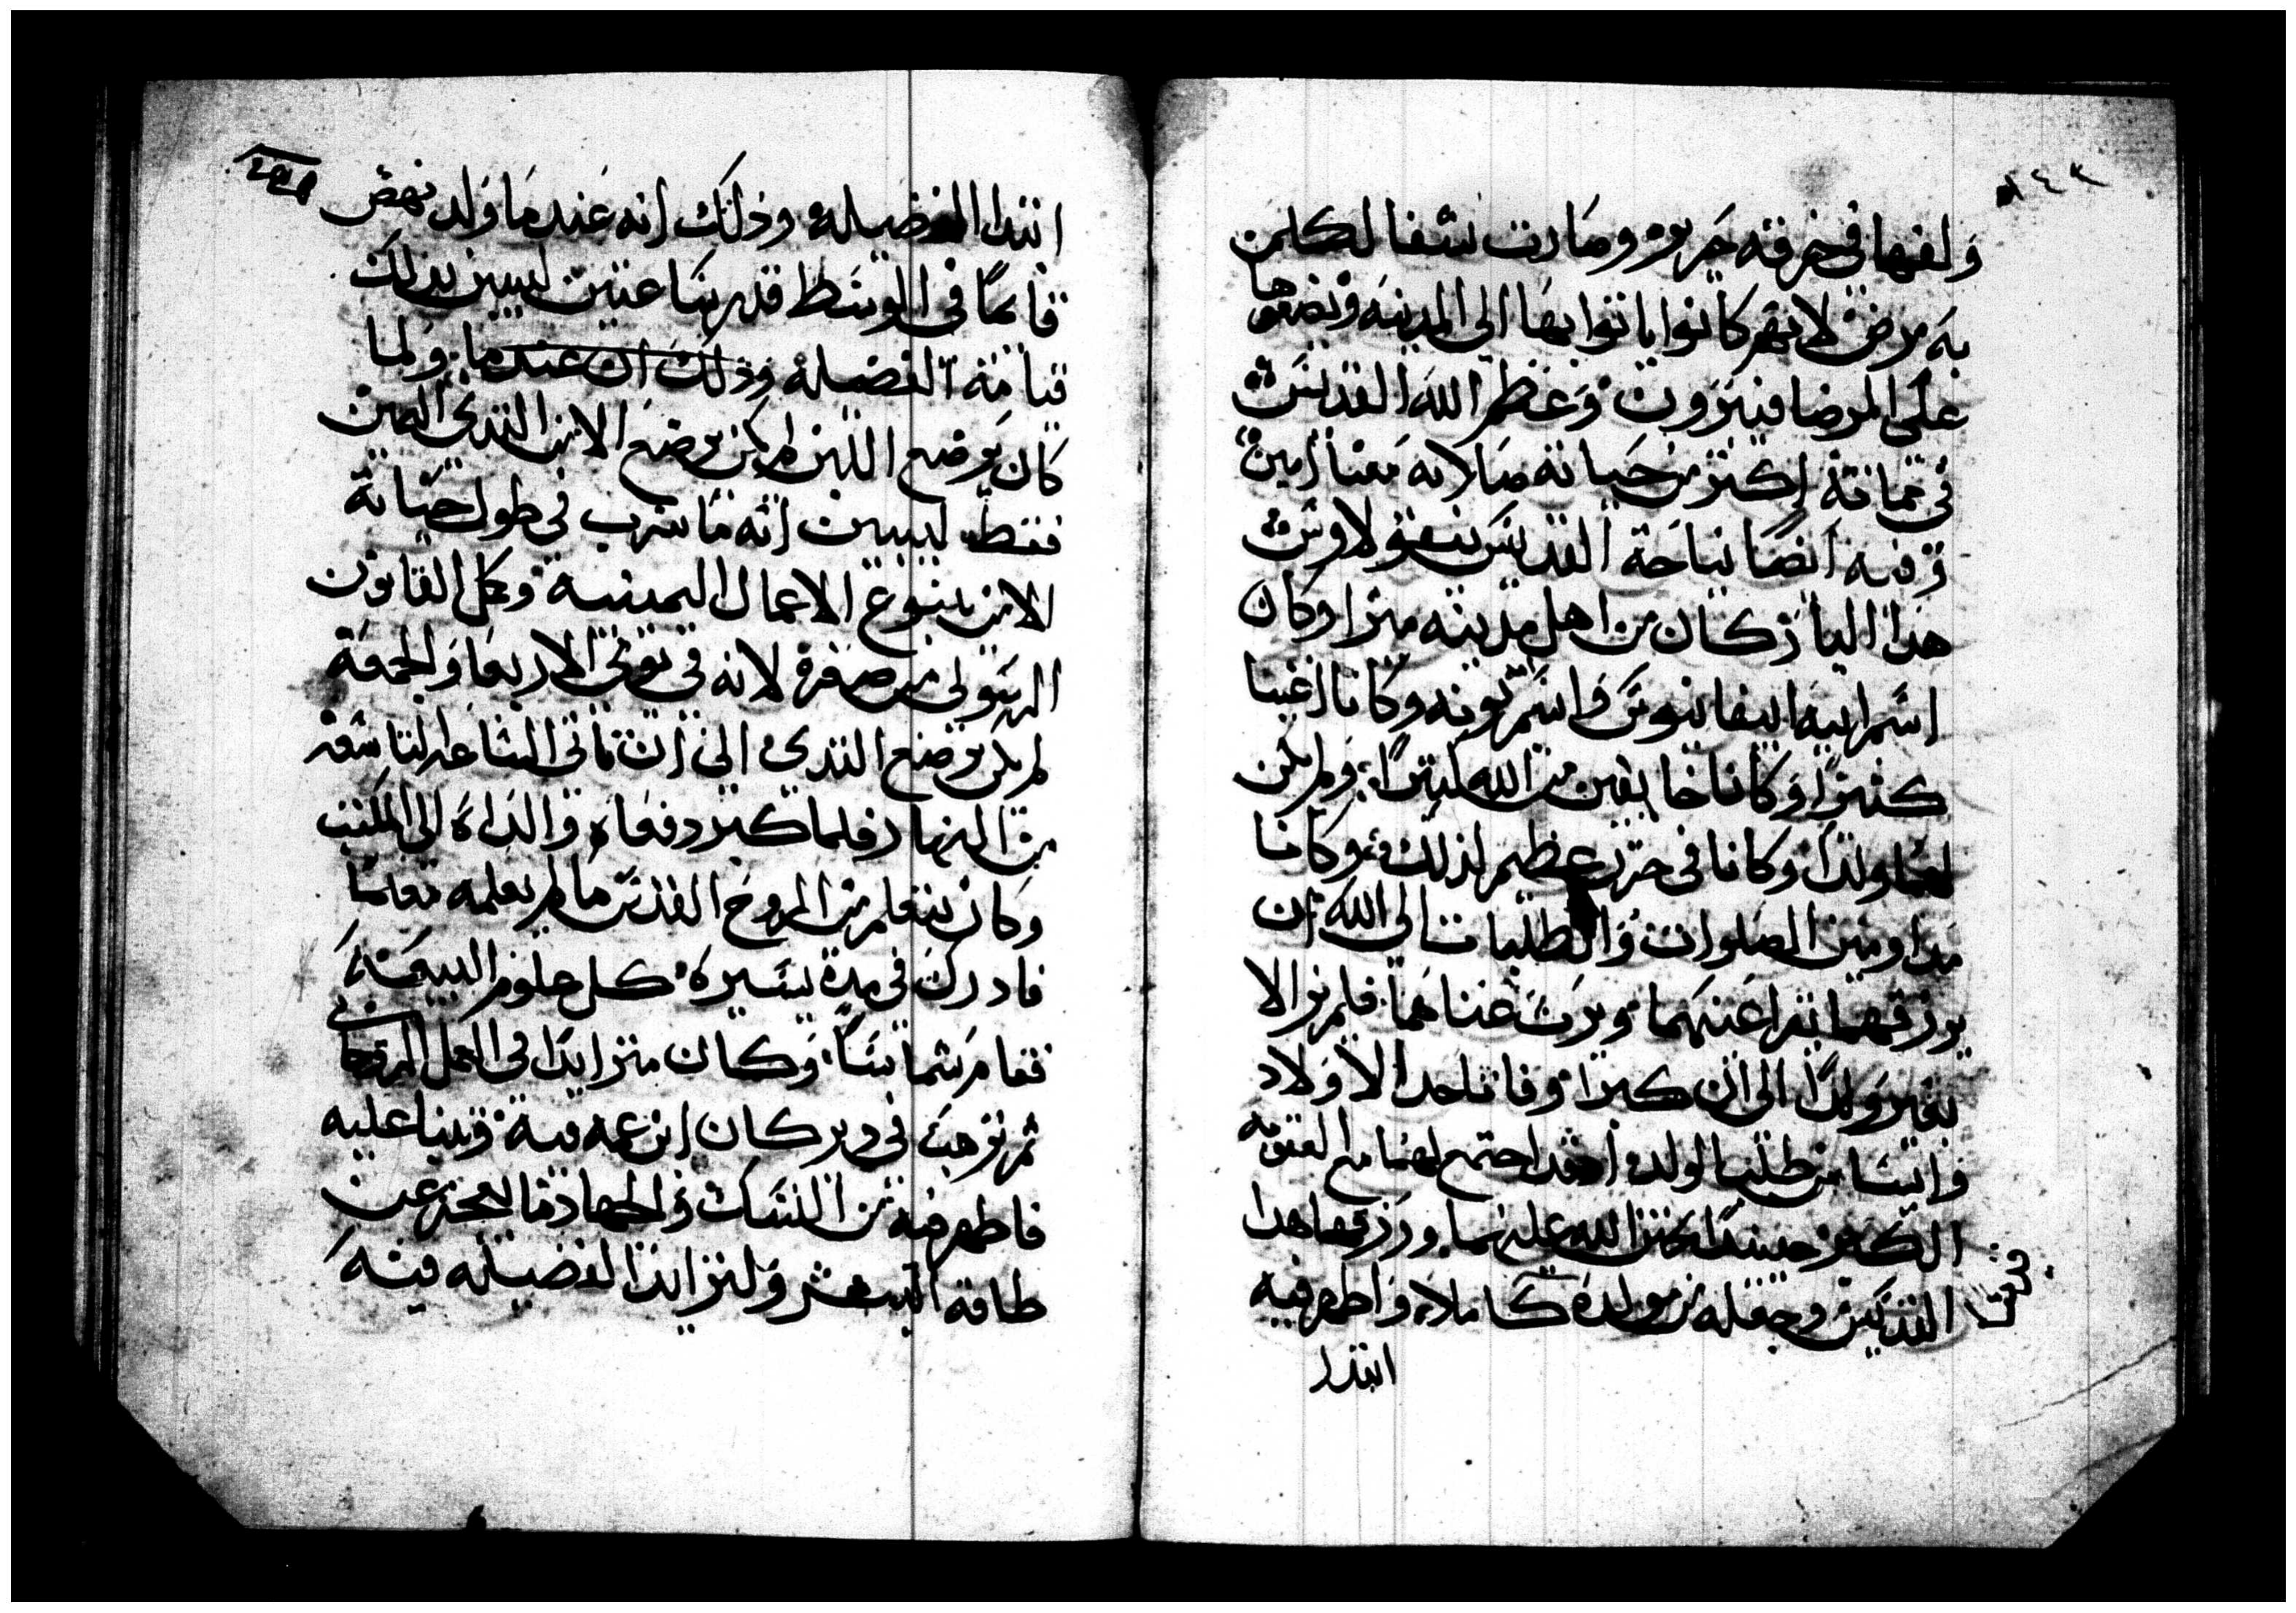 ولفها في خرقه حرير وصارت شفا لكلمن
به مرض لانهم كانوا ياتوا بها الى المدينه وتضعوها
على المرضا فيبرون وعظم الله القديس
في مماته اكتر من حياته صلاته معنا امين
وفيه ايضا نياحة القديس نيقولاوس
هذا البار كان من اهل مدينه ميرا وكان
اسم ابيه ابيفانيوس واسم امه تونه وكانا اغنيا
كثيرا وكانا خايفين من الله كتيرا ولم يكن
لهما ولدا وكانا في حزن عظيم لذلك وكانا
مداومين الصلوات والطلبات الى الله ان
يرزقهما تقرا عنهما ويرت غناهما فلم يزالا
بغير ولدا الى ان كبرا وفاتا حد الاولاد
وايسا من طلب الولد اد قد اجتمع لهما مع العقوبه
الكبر حينيدا تحنن الله عليهما ورزقهما هدا
القديس وجعله من مولده كاملا واظهر فيه
ابتدا
ابتدا الفضيله وذلك انه عند ما ولد نهض
قايما في الوسط قدر ساعتين ليبين بذلك
قيامة الفضيله وذلك ان عند ما ولما
كان يرضع اللبن لم يكن يرضع الا من التدي اليمين
فقط ليبين انه ما شرب في طول حياته
الا من ينبوع الاعمال اليمينية وكمل القانون
الرسولي من صغره لانه في يومي الاربعا والجمعة
لم يكن يرضع التدي الى ان تاتي الساعه التاسعه
من النهار فلما كبر دفعاه والداه الى المكتب
وكان يتعلم من الروح القدس ما لم يعلمه معلما
فادرك في مدة يسيره كل علوم البيعة
فقام شماسا وكان متزايدا في العمل الروحاني
ثم ترهب في دير كان ابن عمه فيه وبنا عليه
فاظهر فيه من النسك والجهاد ما يعجز عن
طاقه البشر ولتزايد الفضيله فيه